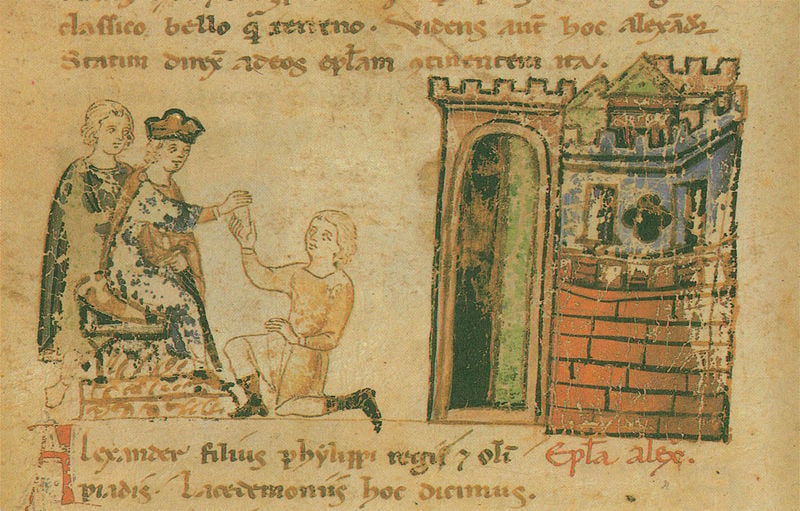 classico bello q̃ terreno. Videns aut̃ hoc alexãdr̃
Statim direx̃ ad eos ep̃lam continentem ita.
Alexander filius phylippi regis ⁊ oli
piadis. Lacedemoniis hoc dicimus.
Ep̃la alex̃.